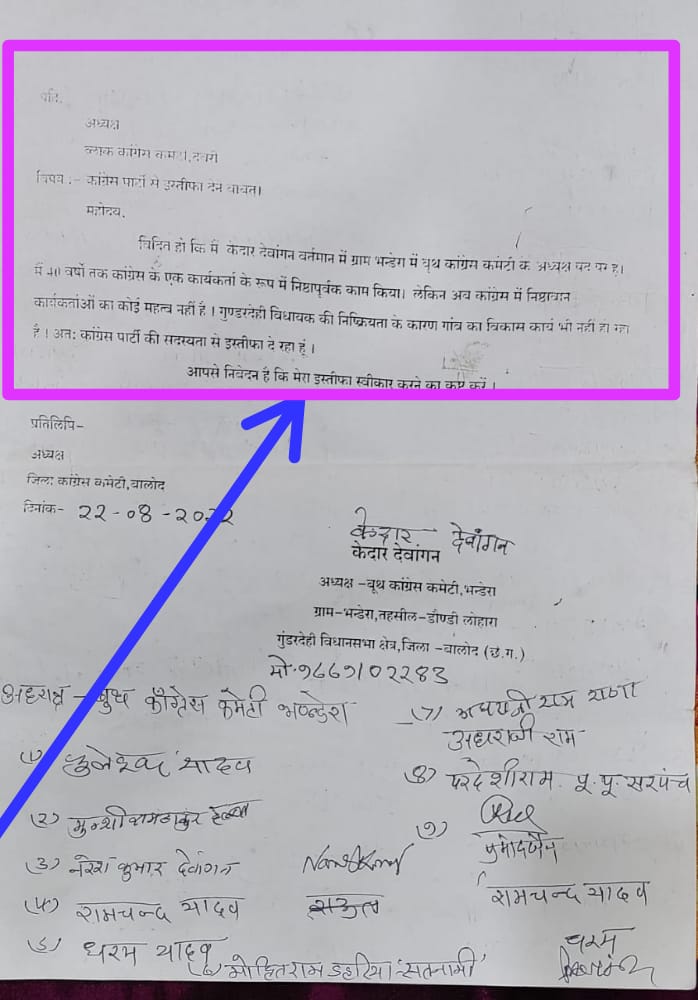 प्रति,
अध्यक्ष
ब्लाक कांग्रेस कमेटी, देवरी
विषय :- कांग्रेस पार्टी से इस्तीफा देने बाबत।
महोदय,
विदित हो कि मैं केदार देवांगन वर्तमान में ग्राम भन्डेरा में बूथ कांग्रेस कमेटी के अध्यक्ष पद पर हू।
मैं 40 वर्षो तक कांग्रेस के एक कार्यकर्ता के रूप में निष्ठापूर्वक काम किया। लेकिन अब कांग्रेस में निष्ठावान
कार्यकर्ताओं का कोई महत्व नहीं है। गुण्डरदेही विधायक की निष्क्रियता के कारण गांव का विकास कार्य भी नहीं हो रहा
है। अतः कांग्रेस पार्टी की सदस्यता से इस्तीफा दे रहा हूं।
आपसे निवेदन है कि मेरा इस्तीफा स्वीकार करने का कष्ट करें।
प्रतिलिपि-
अध्यक्ष
जिला कांग्रेस कमेटी, बालोद
दिनांक- 22-08-2022
केदार देवांगन
केदार देवांगन
अध्यक्ष -बूथ कांग्रेस कमेटी, भन्डेरा
ग्राम-भन्डेरा, तहसील-डौण्डी लोहारा
गुंडरदेही विधानसभा क्षेत्र, जिला -बालोद (छ.ग.)
मो.9669102283
बुथ काँग्रेस कमेटी
(7) राम राणा
राम
(1) यादव
(8) परदेशीराम. पू. पू. सरपंच
(2)
(9)
(3) नरेश कुमार देवांगन
(4) रामचन्द्र यादव
रामचन्द्र यादव
(5) धरम यादव
धरम
(6) मोहितराम डहरिया 'सतनामी'